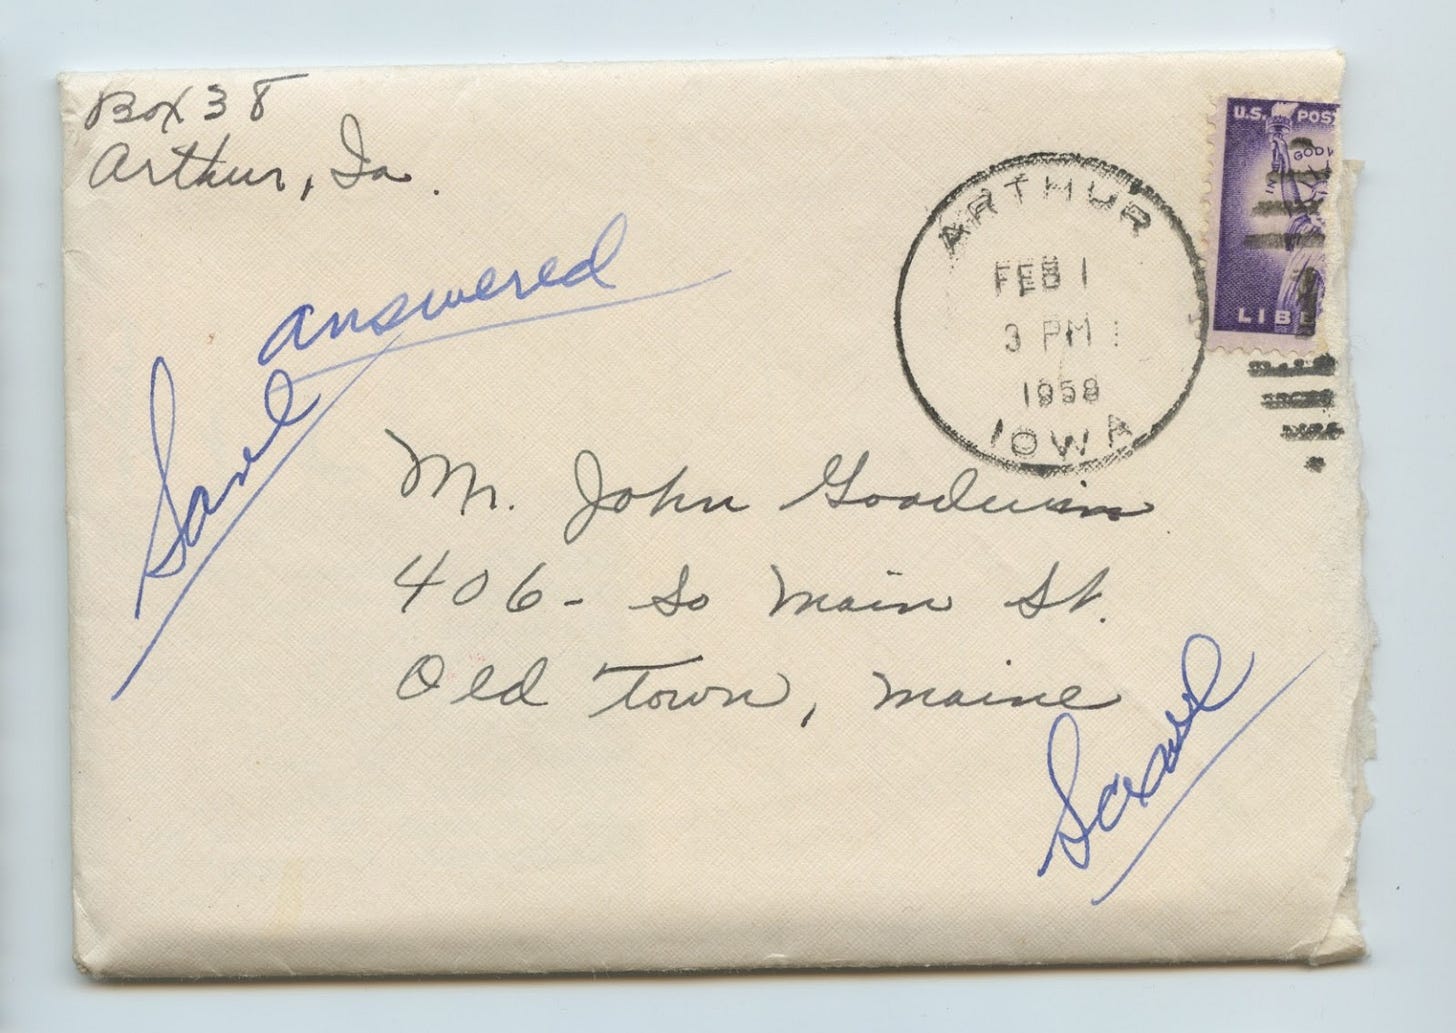 Box 38
Arthur, Ia.
answered
Save
ARTHUR
FEB 1
3 PM
1958
IOWA
U.S. POS
IN GOD W
LIBE
Mr. John Goodwin
406 - So Main St.
Old Town, Maine
Save